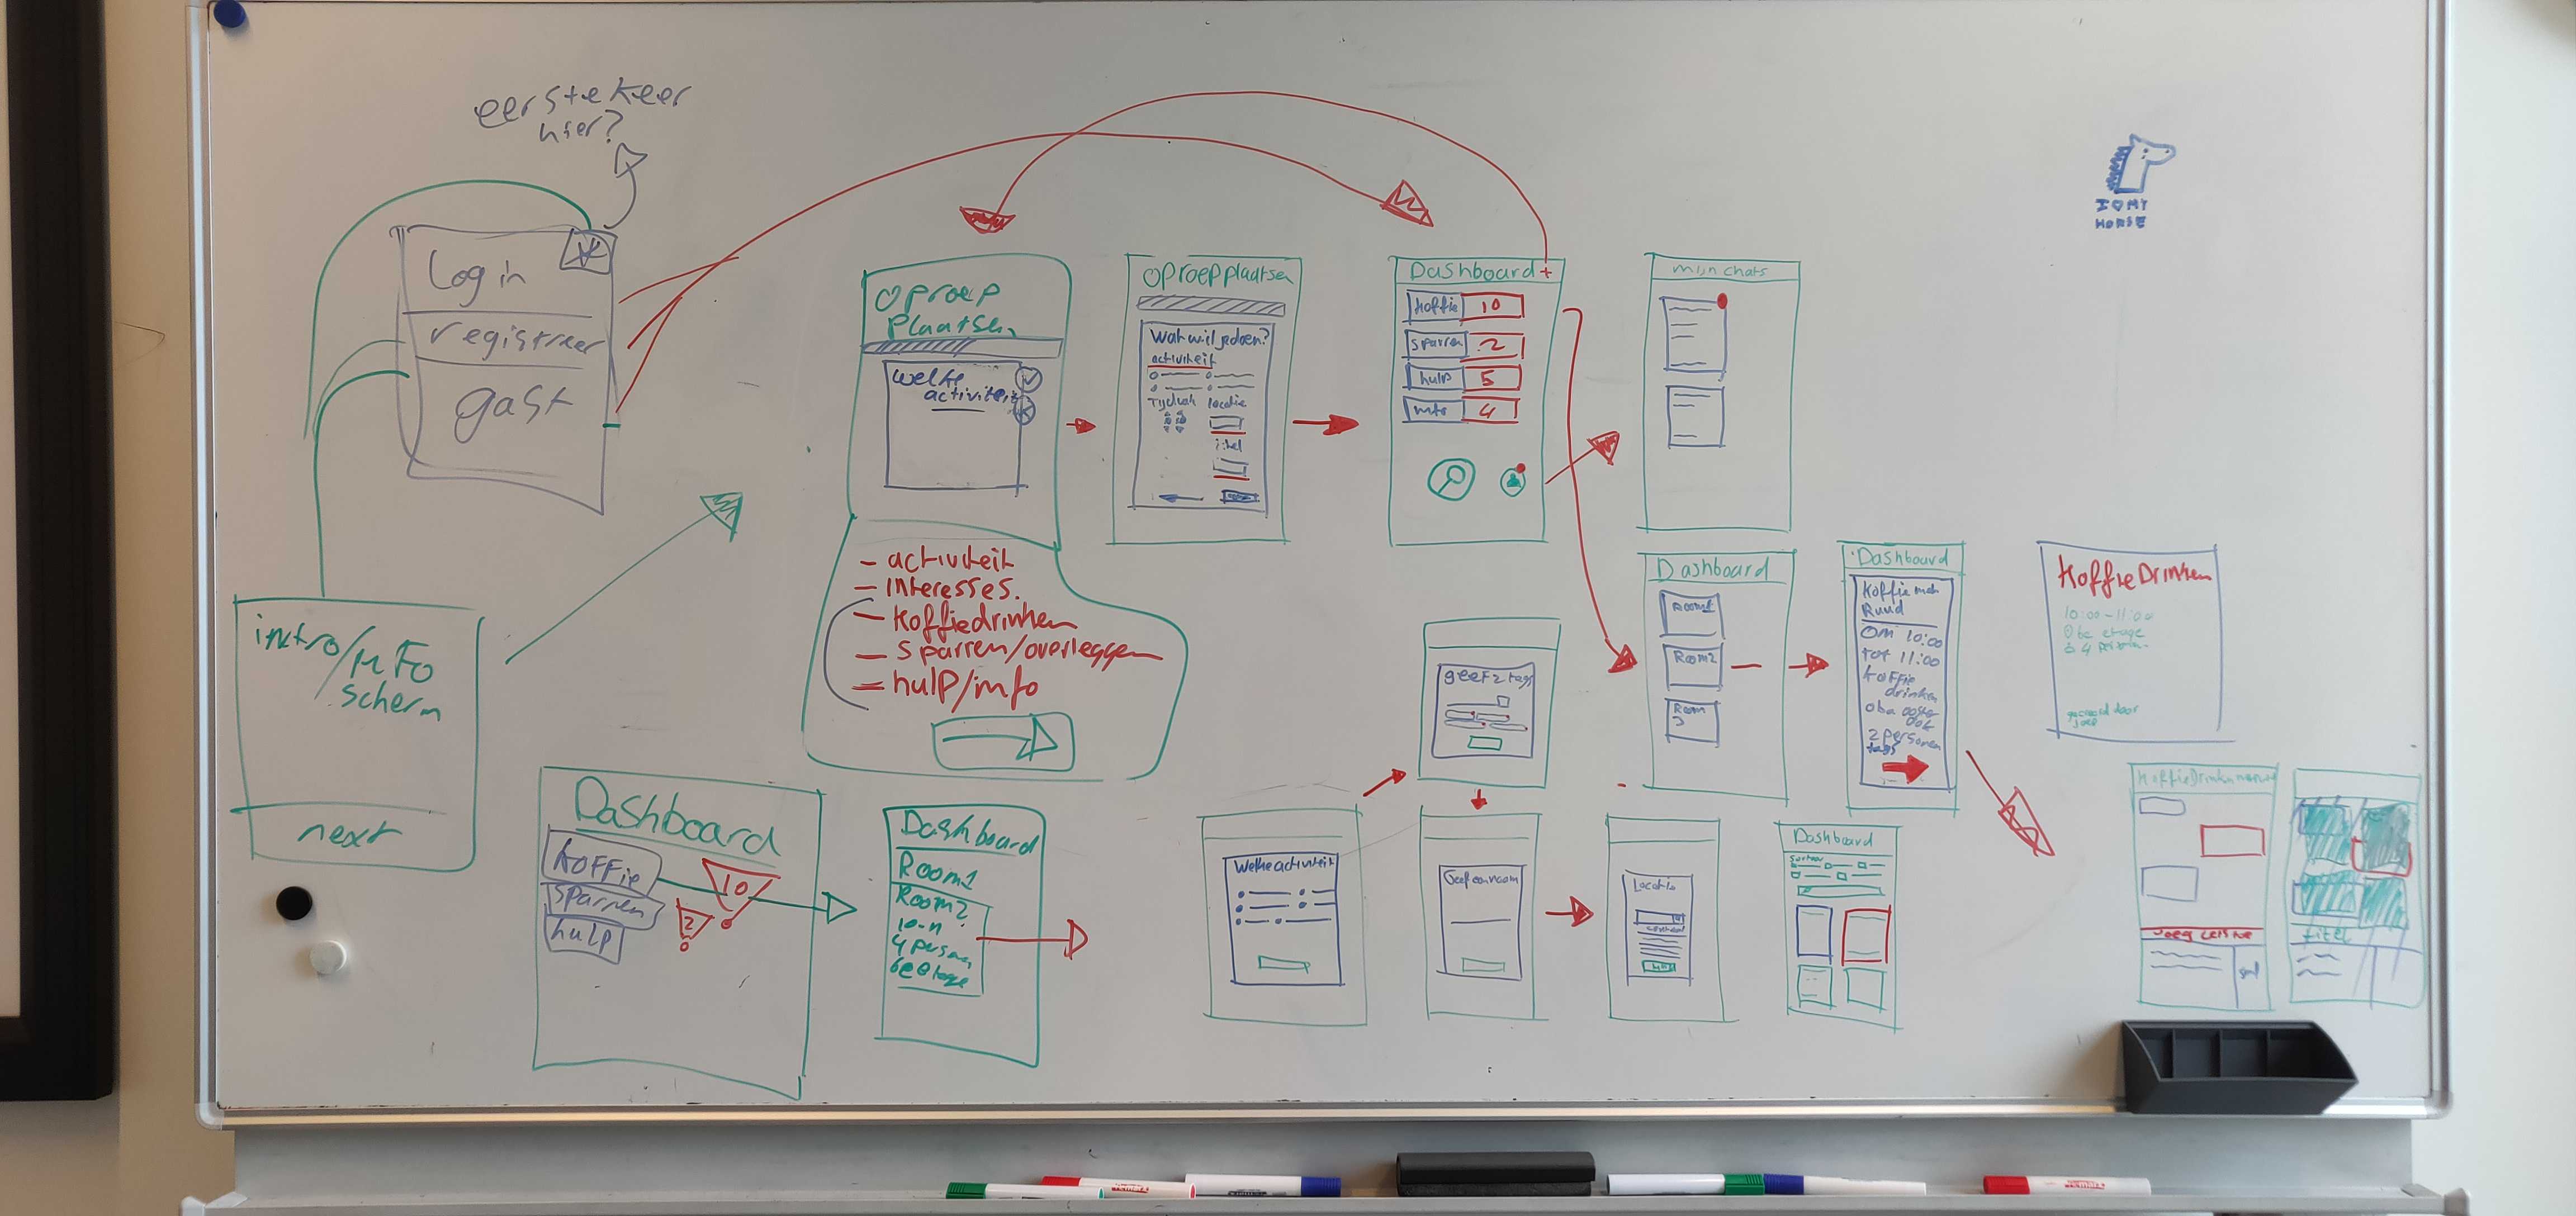 eerste keer
hier?
Log in
registreer
gast
intro/info
scherm
next
oproep
plaatsen
welke
activiteit
- activiteit
- interesses.
- koffiedrinken
- sparren/overleggen
- hulp/info
oproep plaatsen
Wat wil je doen?
activiteit
Tijdvak
locatie
titel
Dashboard +
koffie 10
sparren 2
hulp 5
info 4
mijn chats
I ♡ MY
HORSE
Dashboard
Room 1
Room 2
Room
3
Dashboard
Koffie met
Ruud
Om 10:00
tot 11:00
koffie
drinken
oba ooster
dok
2 personen
tags
KoffieDrinken
10:00-11:00
Oba etage
4 personen
gecreëerd door
Dashboard
koffie
sparren
hulp
10
2
Dashboard
Room 1
Room 2
10-11
4 personen
6e etage
geef 2 tags
Welke activiteit
Geef een naam
Locatie
Dashboard
titel